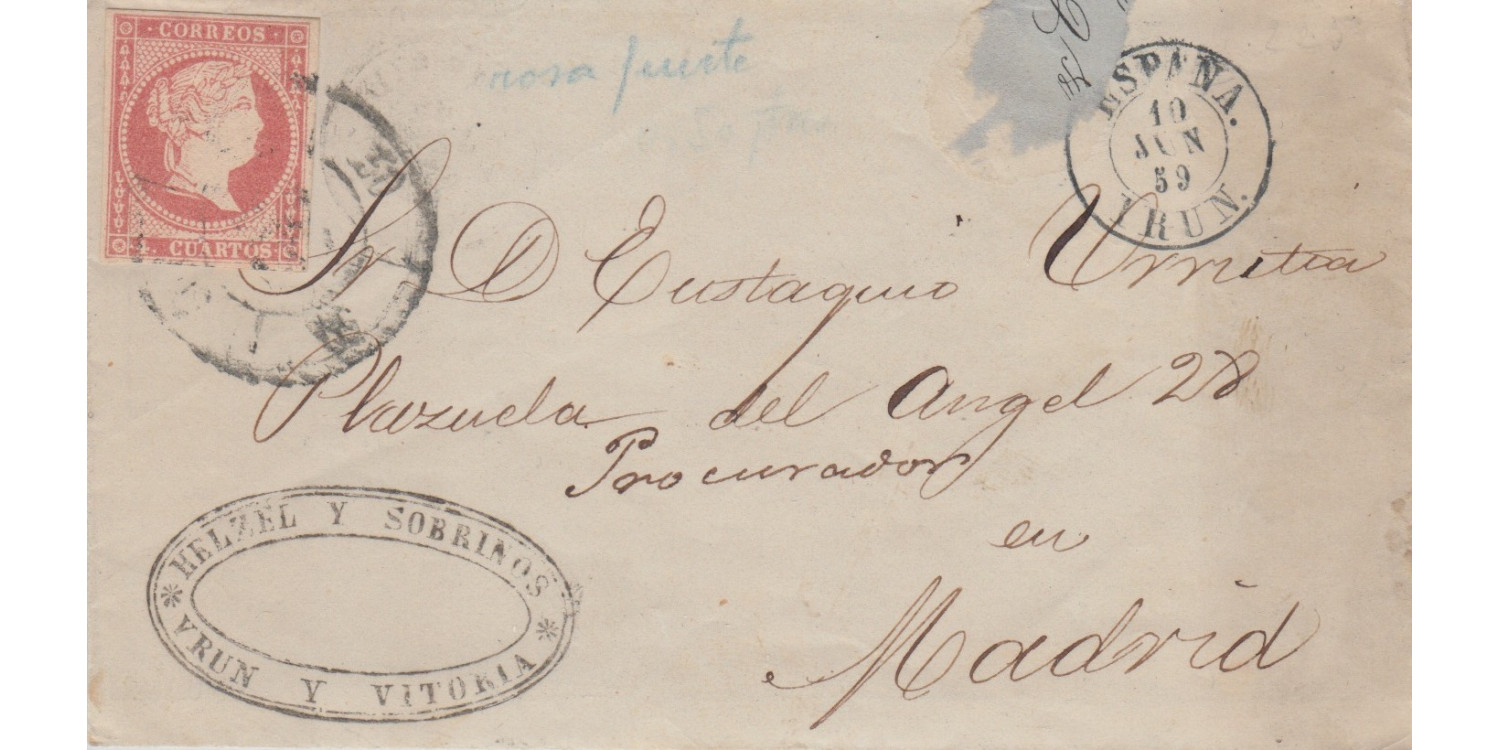 CORREOS
4 CUARTOS
rosa fuerte
ESPAÑA.
10
JUN
59
IRUN.
Sr D Eustaquio Urrutia
Plazuela del Angel 28
Procurador
en
Madrid
HELZEL Y SOBRINOS
YRUN Y VITORIA